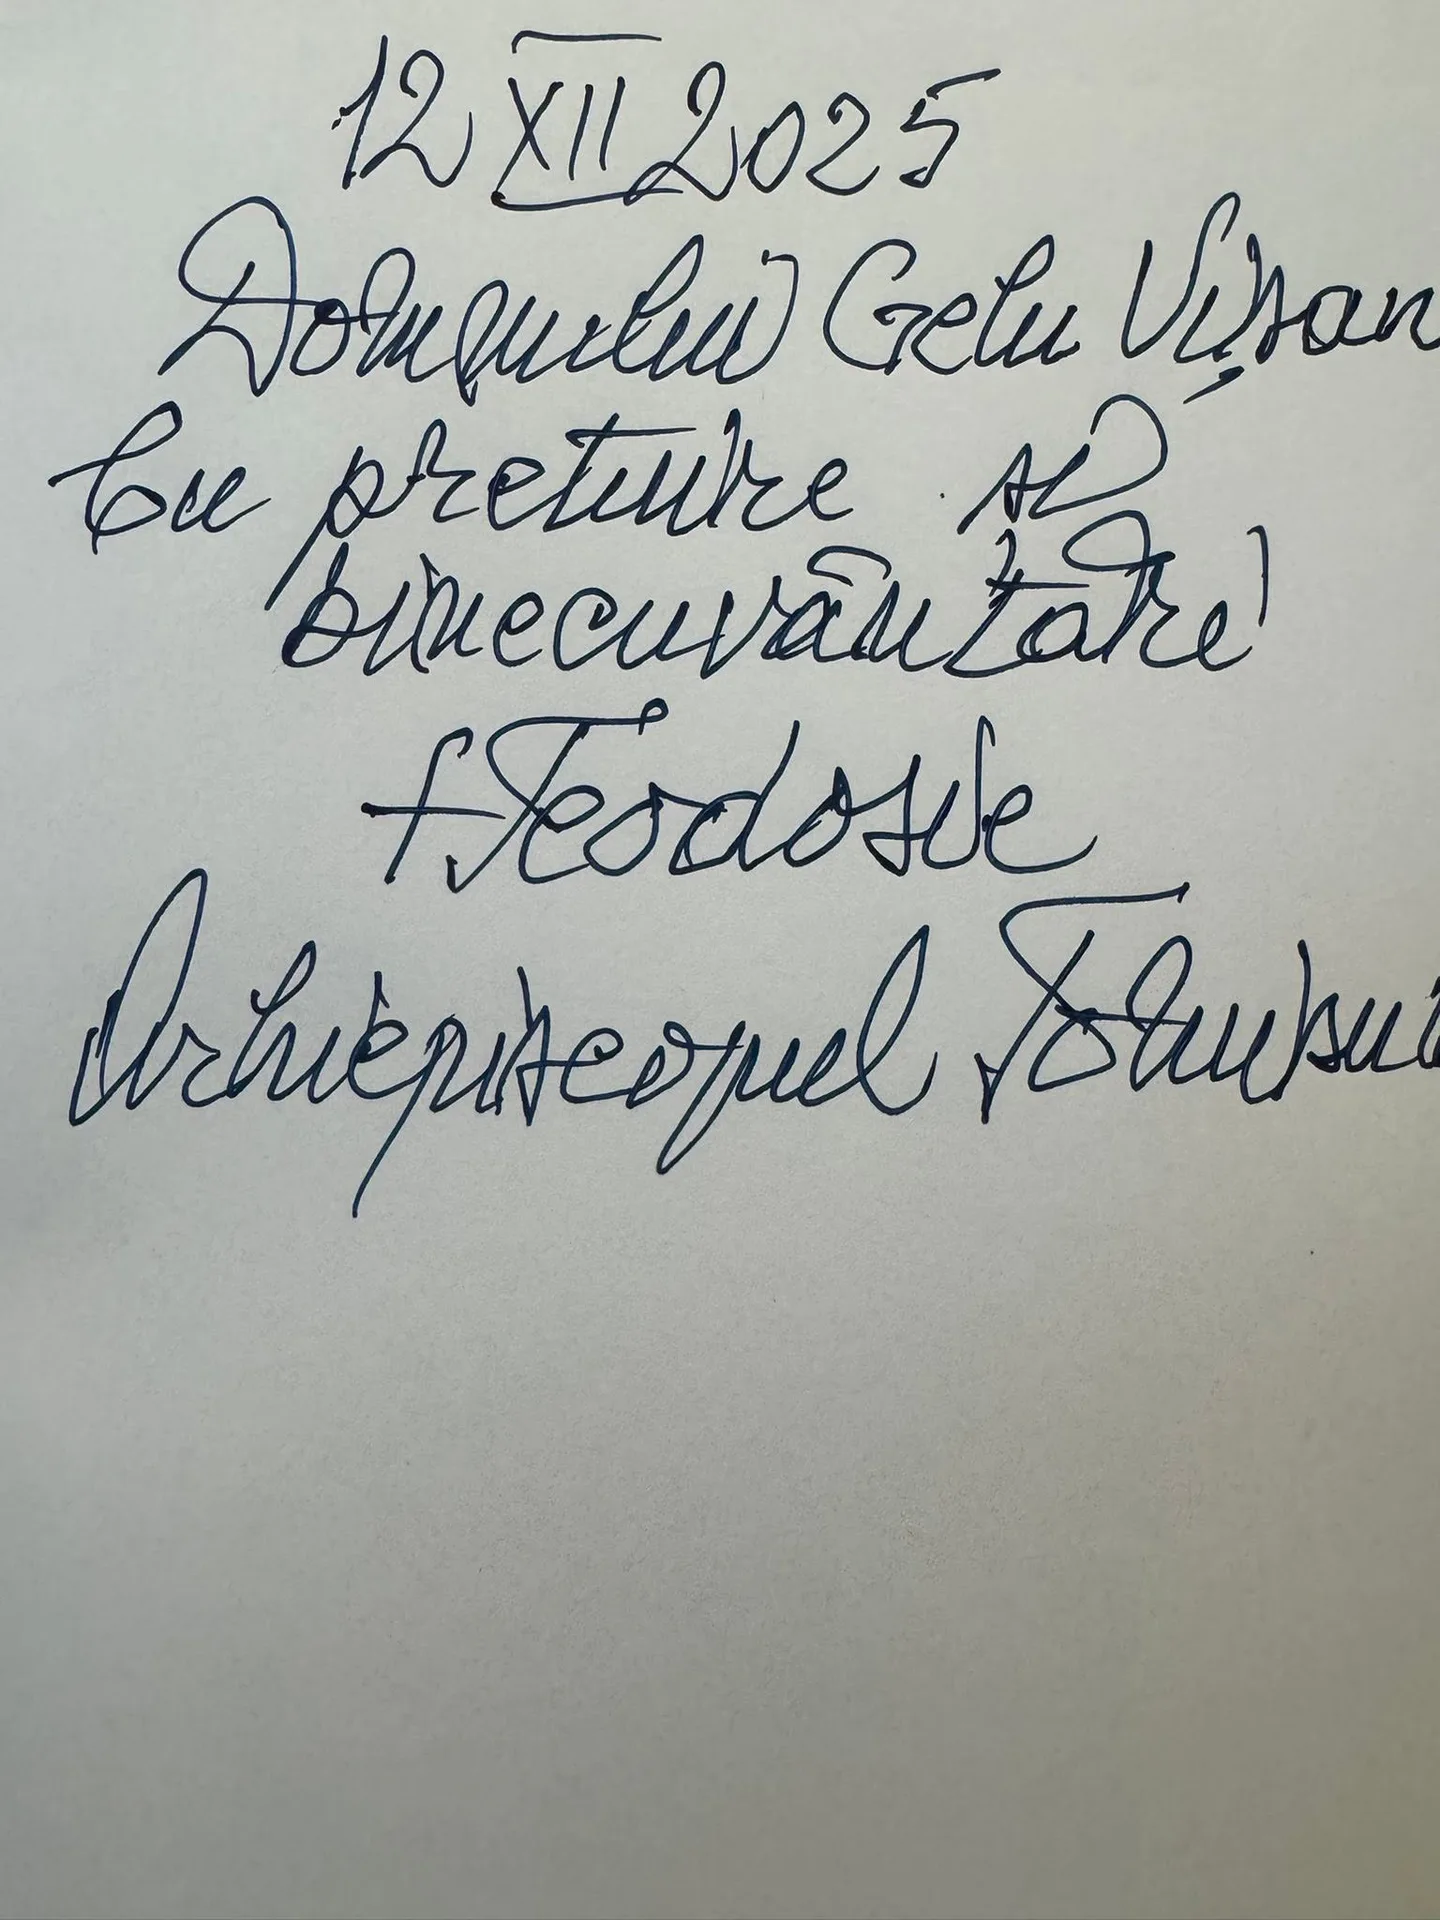 12 XII 2025
Domnului Gelu Vișan
Cu pretuire si
binecuvântare!
†Teodosie
Arhiepiscopul Tomisului